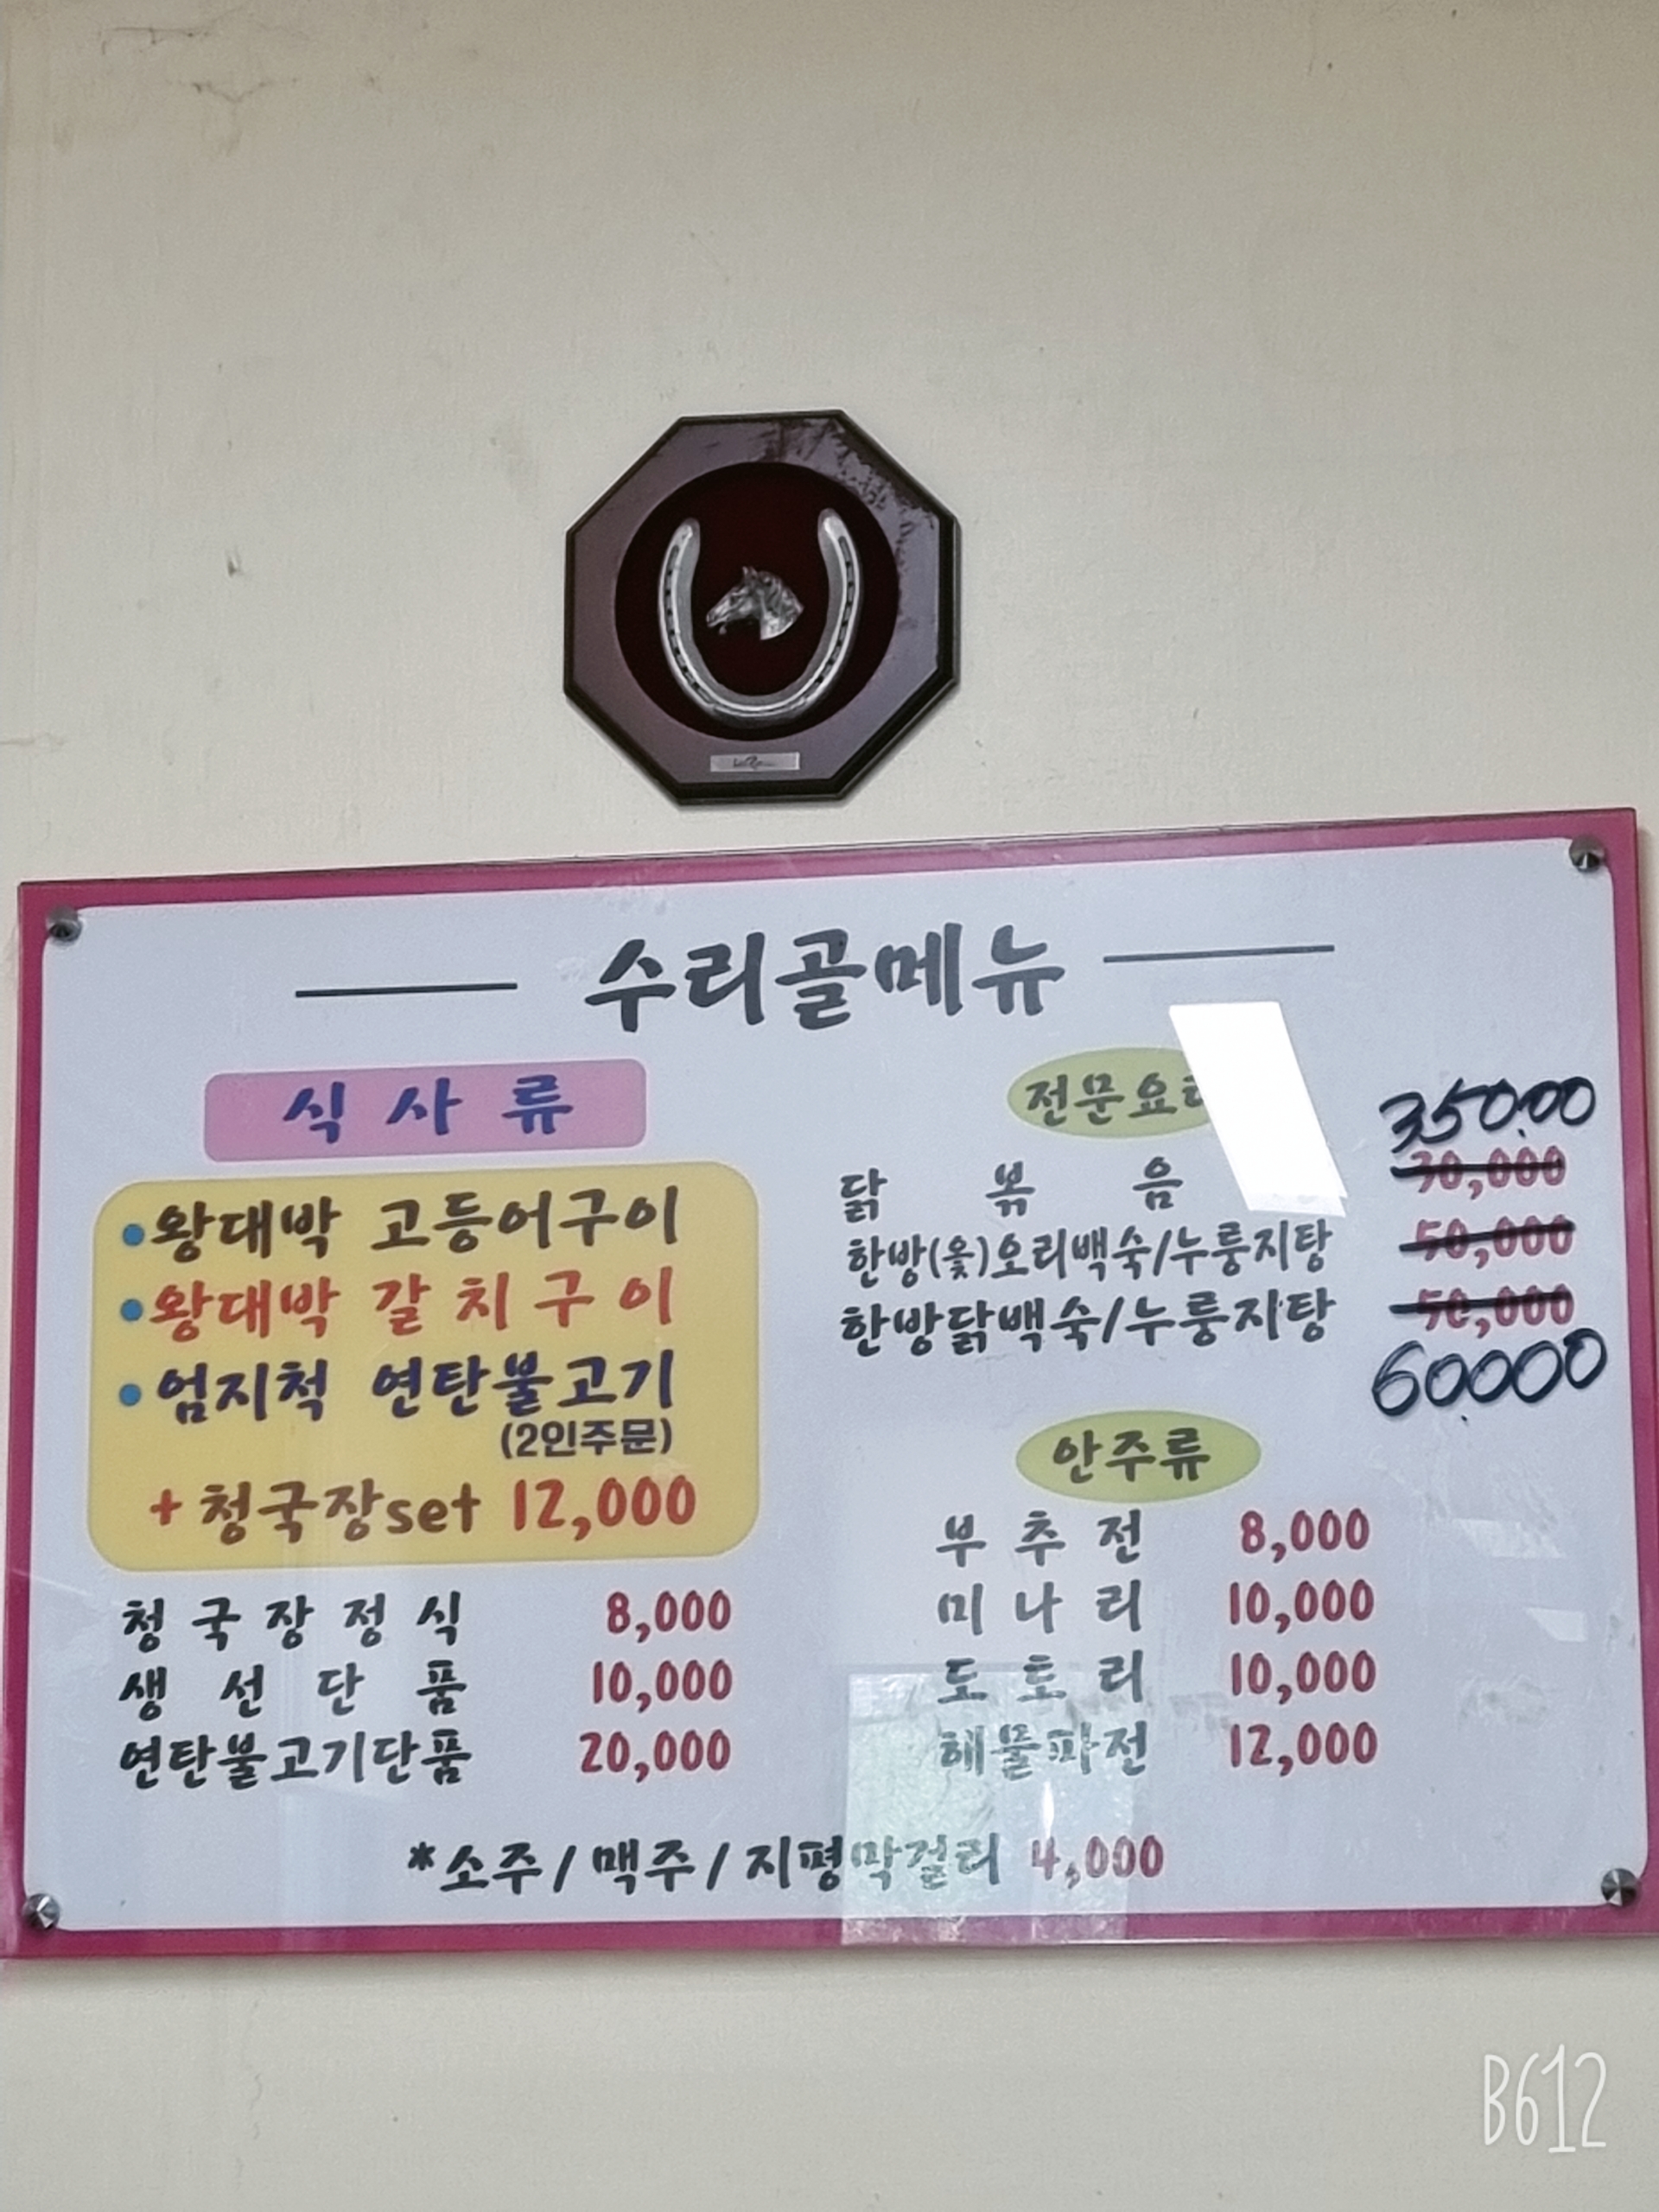 수리골메뉴
식사류
•왕대박 고등어구이
•왕대박 갈치구이
•엄지척 연탄불고기
(2인주문)
+청국장set 12,000
청국장정식 8,000
생선단품 10,000
연탄불고기단품 20,000
전문요
350.00
닭볶음 30,000
한방(옻)오리백숙/누룽지탕 50,000
한방닭백숙/누룽지탕 50,000
60000
안주류
부추전 8,000
미나리 10,000
도토리 10,000
해물파전 12,000
*소주/맥주/지평막걸리 4,000
B612